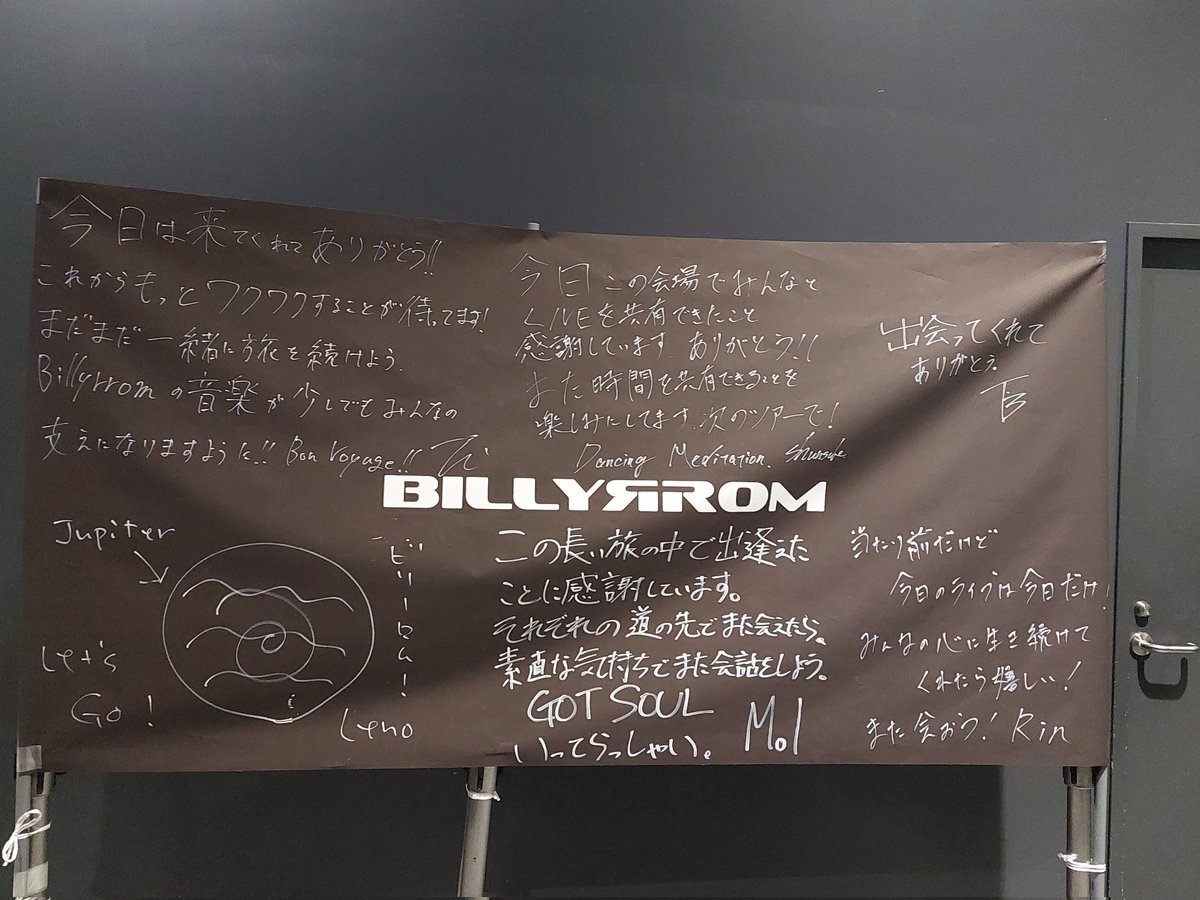 今日は来てくれてありがとう!!
これからもっとワクワクすることが待ってます!
まだまだ一緒に旅を続けよう.
Billyrromの音楽が少しでもみんなの
支えになりますように!! Bon Voyage!!
今日この会場でみんなと
LIVEを共有できたこと
感謝しています. ありがとう!!
また時間を共有できることを
楽しみにしてます. 次のツアーで!
Dancing Meditation. Shunsuke
出会ってくれて
ありがとう.
BILLYRROM
Jupiter
Let's
Go!
ビリーロム!
Leno
この長い旅の中で出逢えた
ことに感謝しています。
それぞれの道の先でまた会えたら。
素直な気持ちでまた会話をしよう。
GOT SOUL
いってらっしゃい。 Mol
当たり前だけど
今日のライブは今日だけ!
みんなの心に生き続けて
くれたら嬉しい!
また会おう! Rin